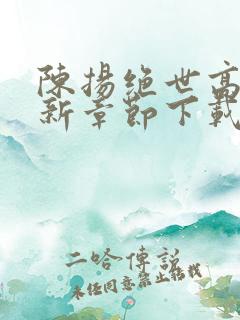 陳揚絕世高
新章節下載
二哈傳說
未經同意禁止轉載